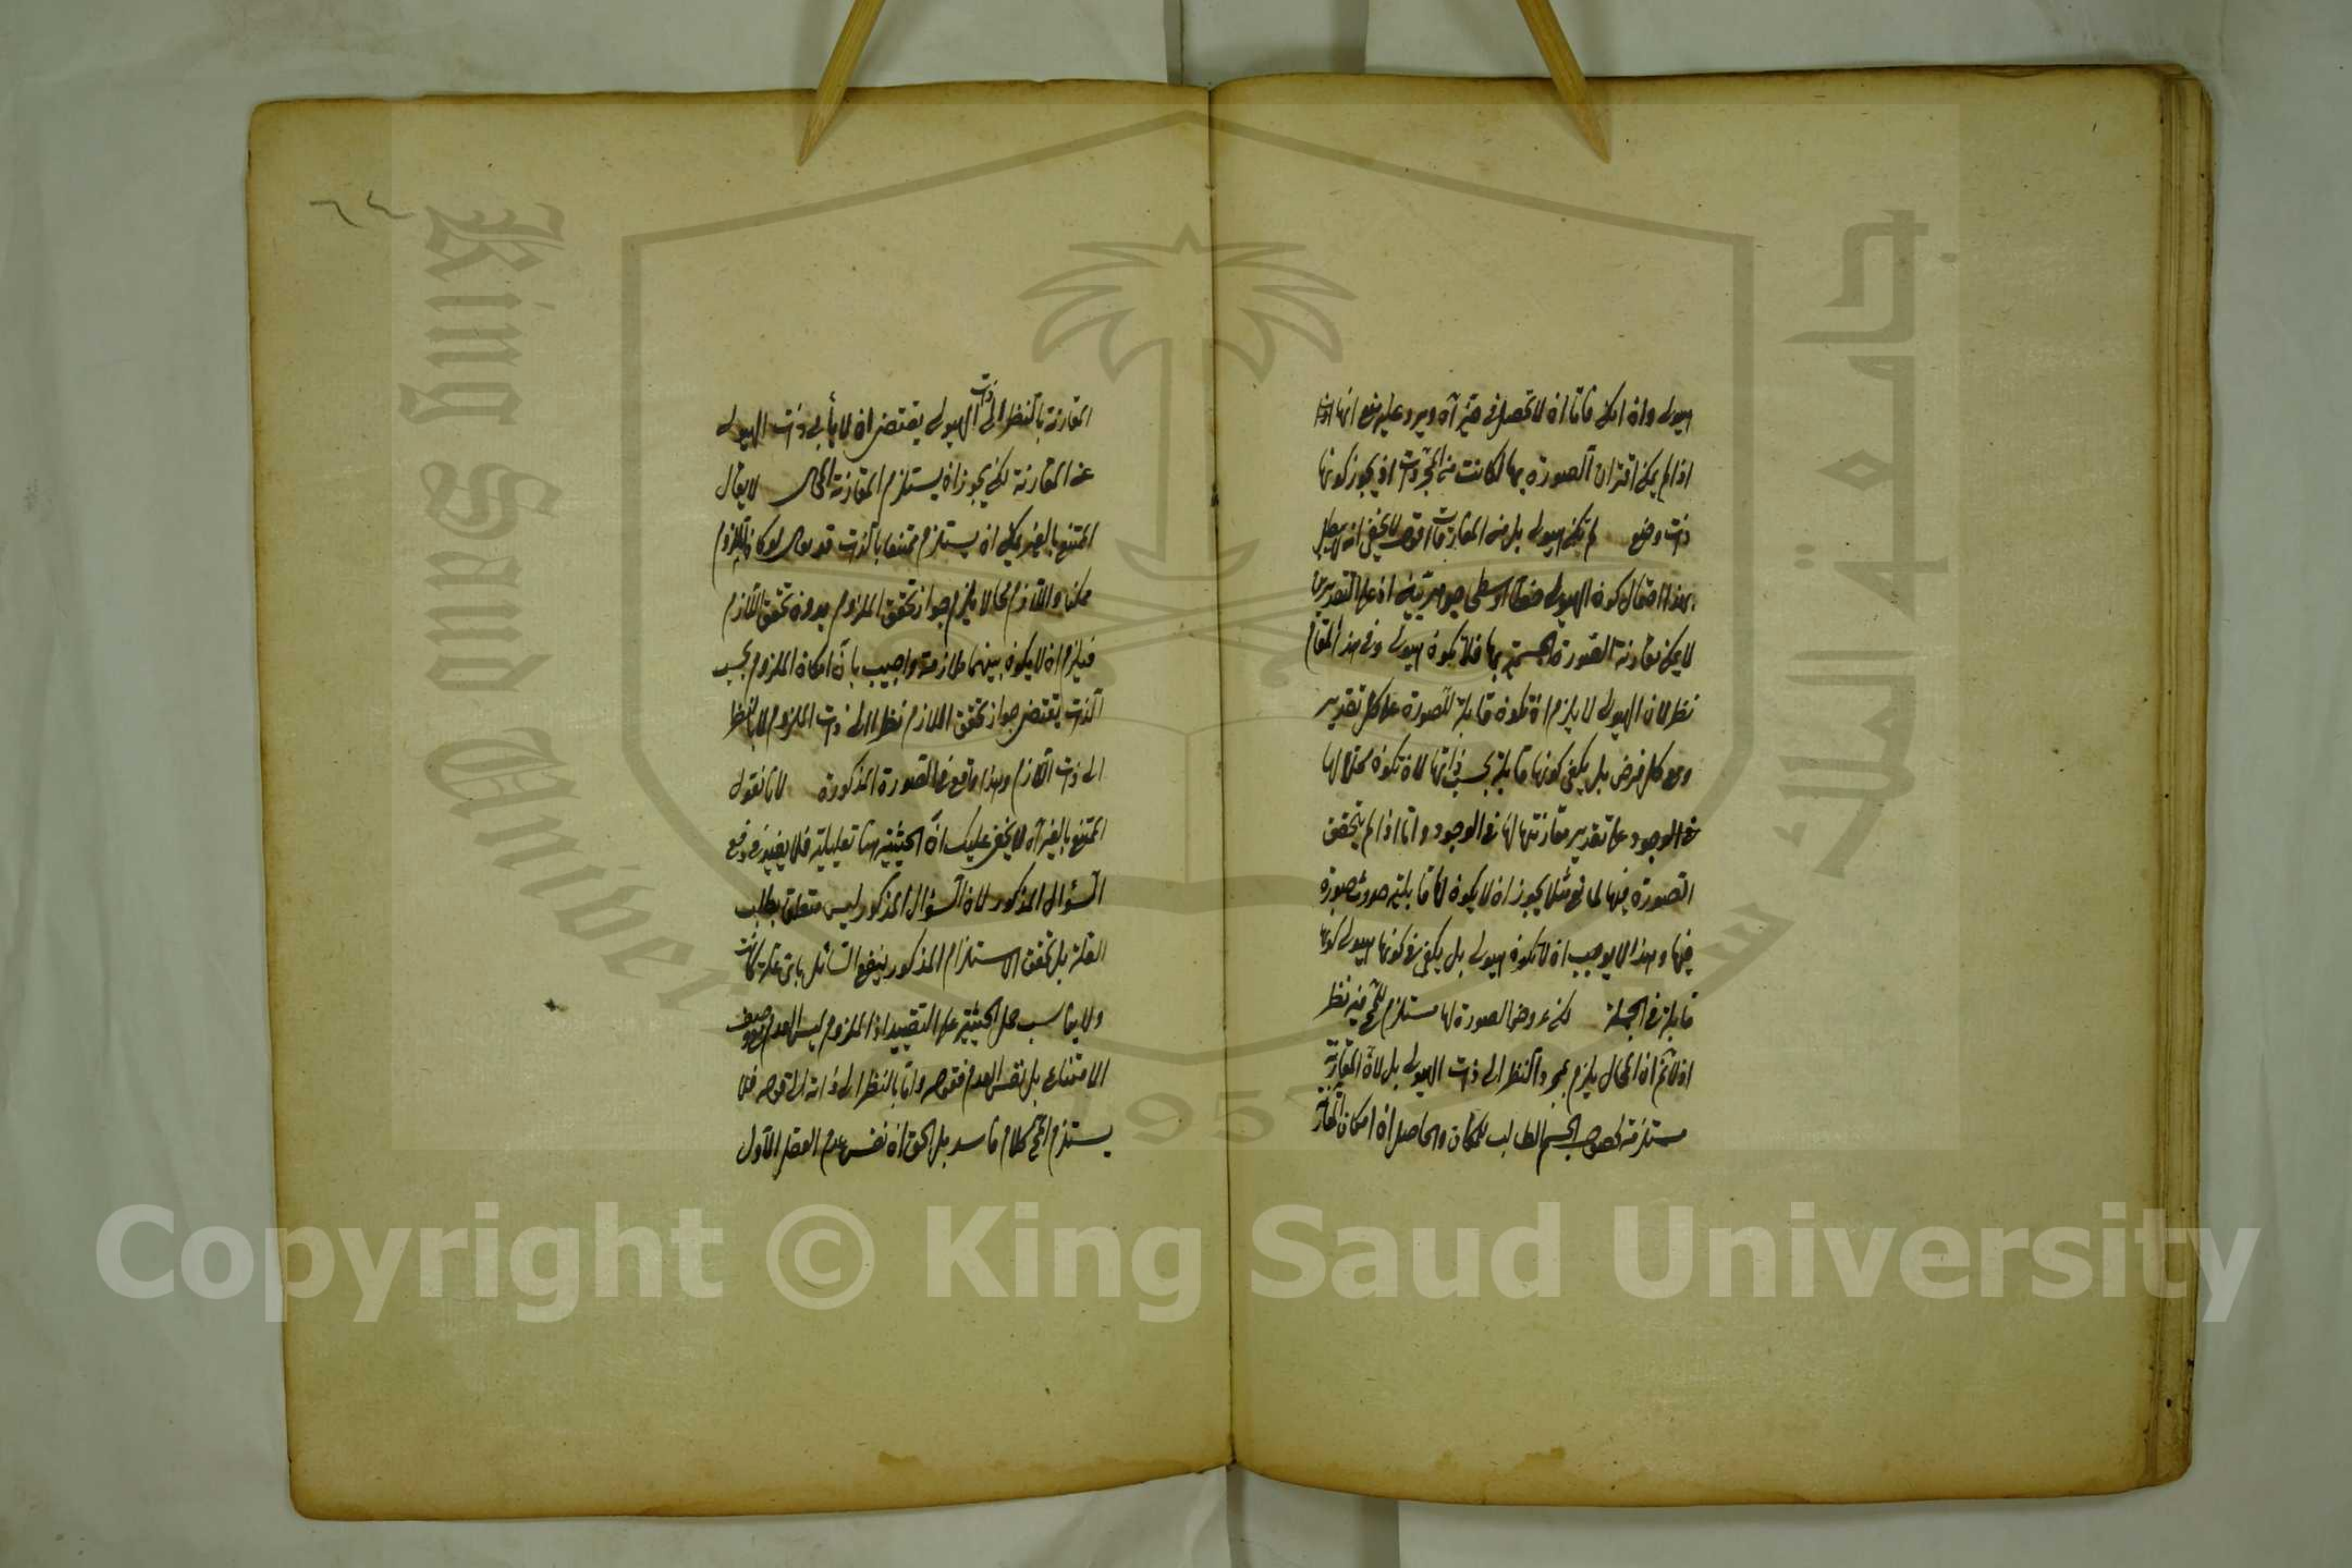 هيولى وان امكن فاما ان لا تحصل في حيز آه ويرد عليه منع انها
اذا لم يمكن اقتران الصورة بها لكانت من المجردات اذ يجوز كونها
ذات وضع لم تكن هيولى بل من المفارقات اقول لا يخفى انه
بهذا احتمال كون الهيولى جوهرية اذ على التقديرين
لا يمكن مقارنة الصورة الجسمية بها فلا تكون هيولى وفي هذا المقام
نظر لان الهيولى لا يلزم ان تكون قابلة للصورة على كل تقدير
ومع كل فرض بل يكفي كونها قابلة بحسب ذاتها لان تكون محلا لها
في الوجود على تقدير مقارنتها لها في الوجود واما اذا لم يتحقق
الصورة فيها لمانع مثلا يجوز ان لا يكون لها قابلية حدوث صورة
فيها وهذا لا يوجب ان لا تكون هيولى بل يكفي في كونها هيولى كونها
قابلة في الجملة لكن عروض الصورة لها مستلزم للمح فيه نظر
اذ لا نم ان المحال يلزم بمجرد النظر الى ذات الهيولى بل لان المقارنة
مستلزمة لحصول الجسم الطالب للمكان والحاصل ان امكان
المقارنة بالنظر الى ذات الهيولى يقتضي ان لا يأبى ذات الهيولى
عن المقارنة لكن يجوز ان يستلزم المقارنة المحال لا يقال
الممتنع بالغير يمكن ان يستلزم ممتنعا بالذات قد يقال لو كان الملزوم
ممكنا واللازم محالا يلزم جواز تحقق الملزوم بدون تحقق اللازم
فيلزم ان لا يكون بينهما ملازمة واجيب بان امكان الملزوم بحسب
الذات يقتضي جواز تحقق اللازم نظرا الى ذات الملزوم لا بالنظر
الى ذات اللازم وهذا واقع في الصورة المذكورة لانا نقول
الممتنع بالغير آه لا يخفى عليك ان الحيثية هنا تعليلية فلا يفيد في دفع
السؤال المذكور لان السؤال المذكور ليس متعلق بطلب
العلة بل تحقق الاستلزام المذكور ينفع السائل باي علة كانت
ولا يناسب حمل الحيثية على التقييد اذ الملزوم ليس العدم مع وصف
الامتناع بل نفس العدم فقوله واما بالنظر الى ذاته الى قوله فلا
يستلزم المح كلام فاسد بل الحق ان نفس عدم العقل الاول
٦٤
King Saud Univer
1957
Copyright © King Saud University